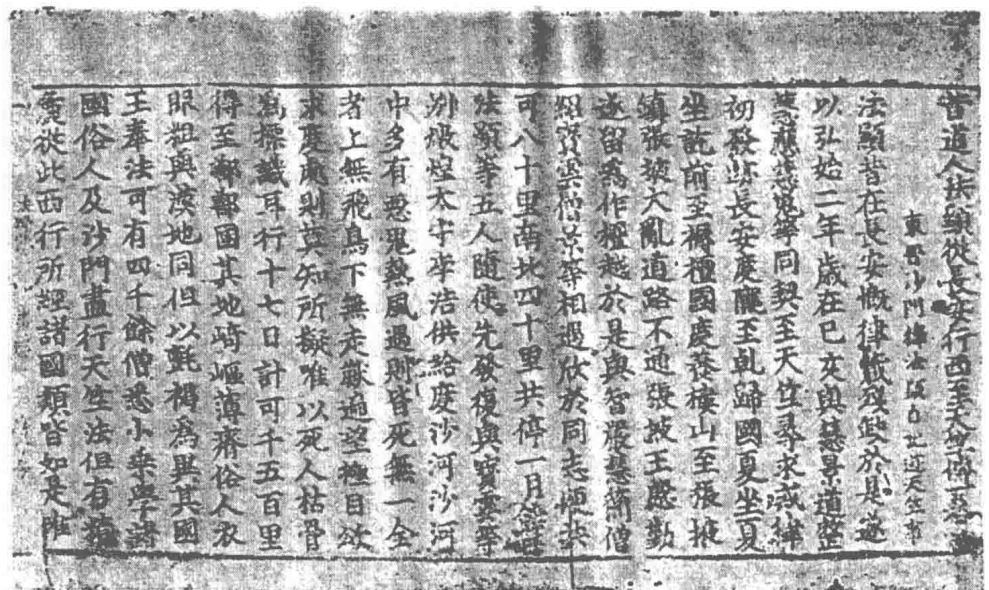 昔道人法顯從長安行西至天竺傳一卷
東晉沙門釋法顯自記遊天竺事
法顯昔在長安慨律藏殘缺於是遂
以弘始二年歲在己亥與慧景道整
慧應慧嵬等同契至天竺尋求戒律
初發跡長安度隴至乾歸國夏坐夏
坐訖前至褥檀國度養樓山至張掖
鎮張掖大亂道路不通張掖王慇勤
遂留為作檀越於是與智嚴慧簡僧
紹寶雲僧景等相遇欣於同志便共
可八十里南北四十里共停一月餘日
法顯等五人隨使先發復與寶雲等
別燉煌太守李浩供給度沙河沙河
中多有惡鬼熱風遇則皆死無一全
者上無飛鳥下無走獸遍望極目欲
求度處則莫知所擬唯以死人枯骨
為摽幟耳行十七日計可千五百里
得至鄯鄯國其地崎嶇薄瘠俗人衣
服粗與漢地同但以氈褐為異其國
王奉法可有四千餘僧悉小乘學諸
國俗人及沙門盡行天竺法但有精
麁從此西行所經諸國類皆如是唯